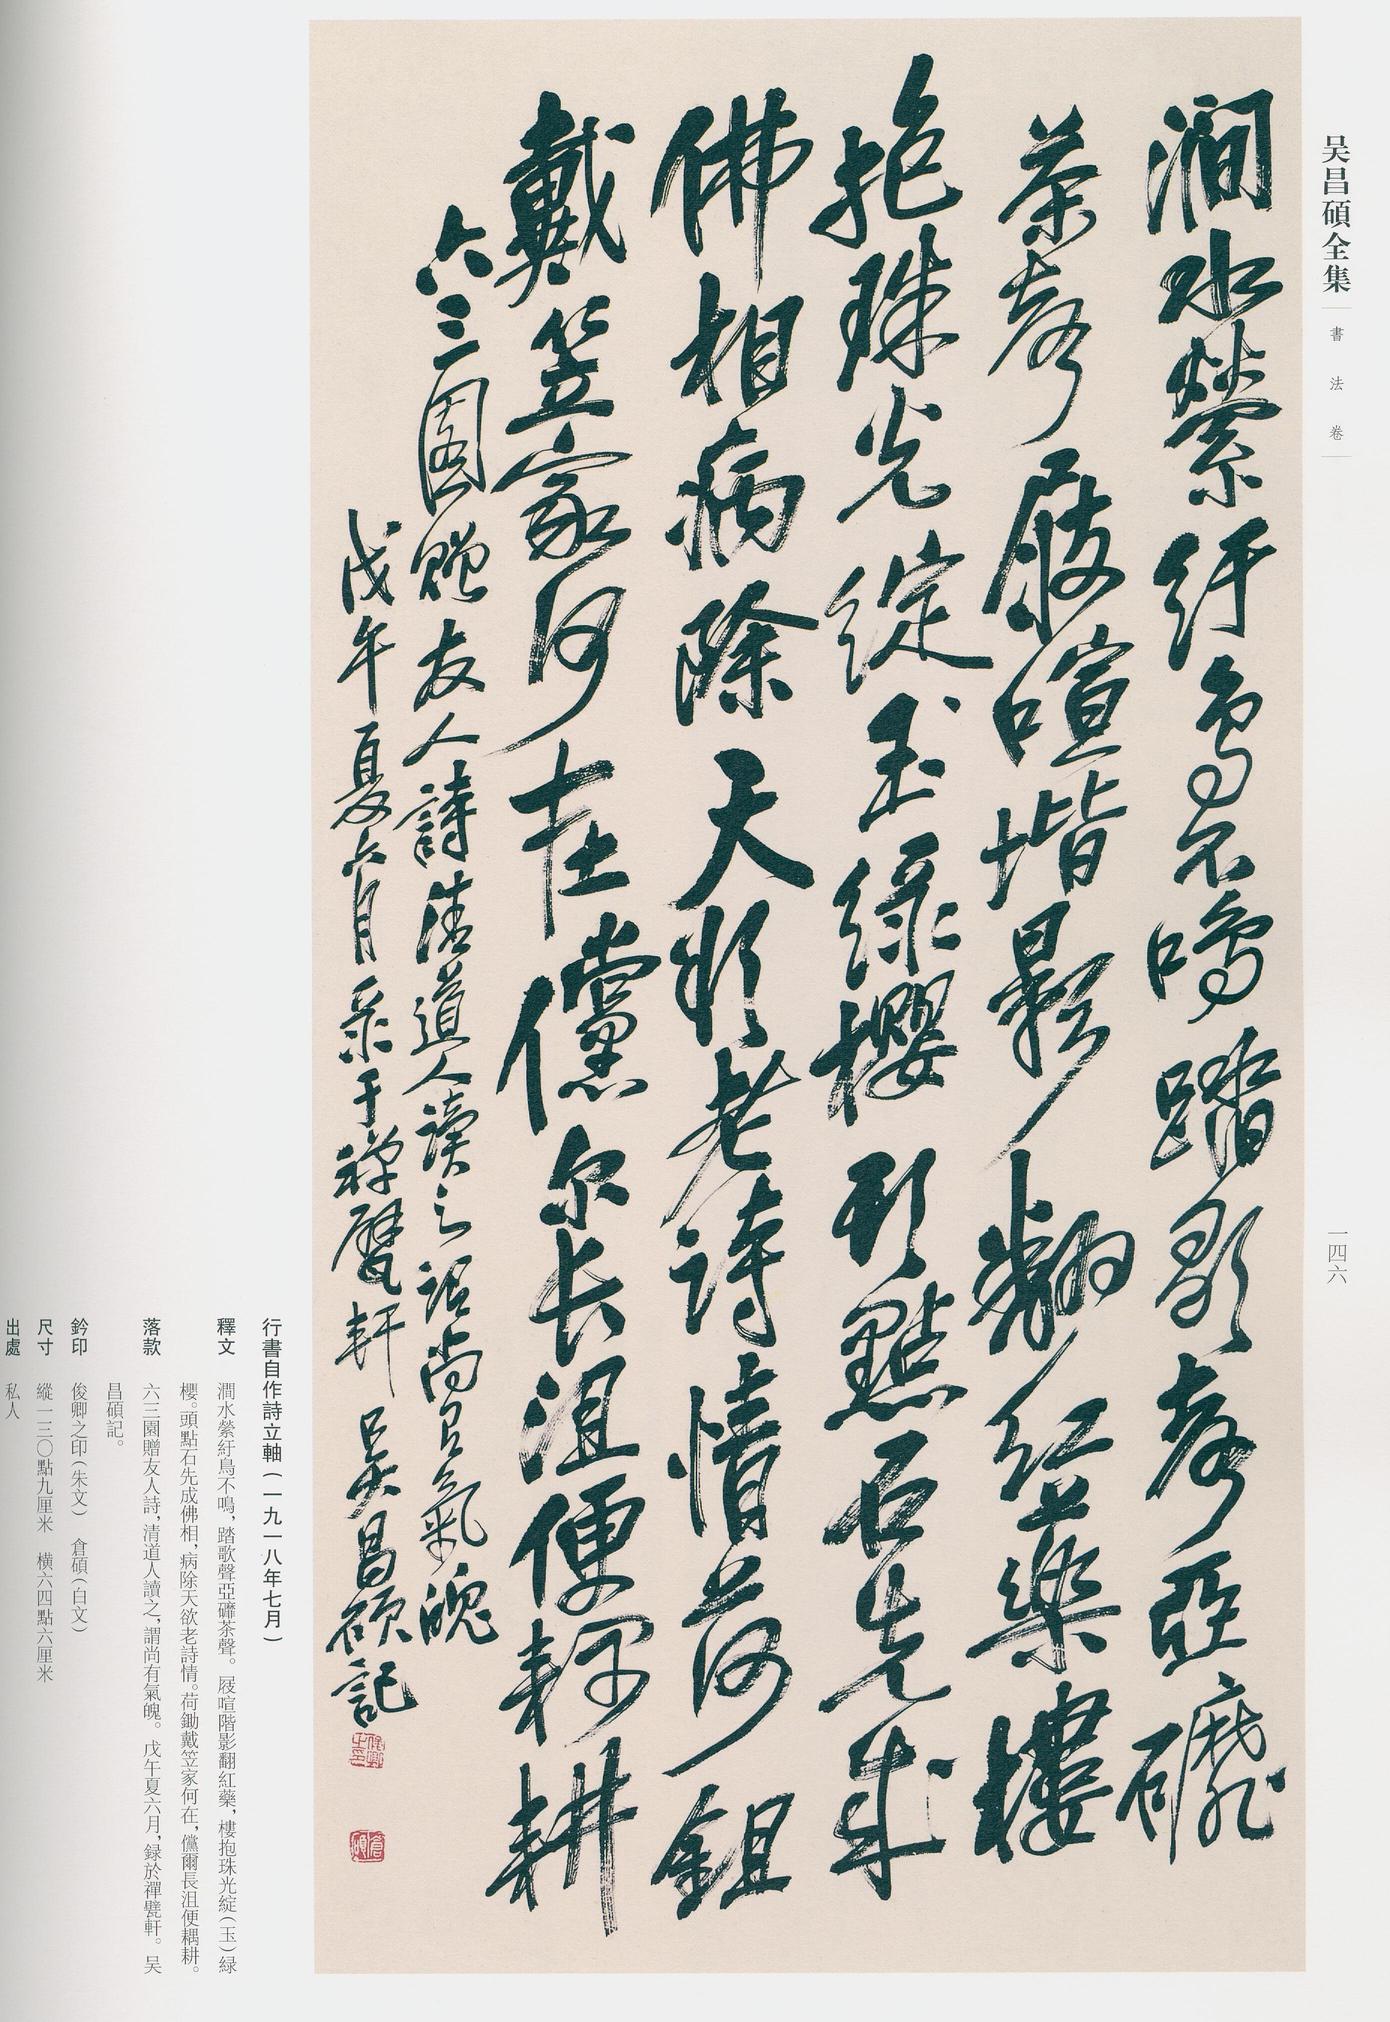 吴昌碩全集
書法卷
一四六
澗水縈紆鳥不鳴踏歌聲亞礳
茶聲屐喧堦影翻紅藥樓
抱珠光綻玉緑櫻頭點石先成
佛相病除天欲老詩情荷鉏
戴笠家何在儻尔长沮便耦耕
六三園贈友人詩清道人讀之謂尚有氣魄
戊午夏六月录于禅甓軒吴昌碩記
俊卿之印
倉碩
行書自作詩立軸（一九一八年七月）
釋文 澗水縈紆鳥不鳴，踏歌聲亞礳茶聲。屐喧階影翻紅藥，樓抱珠光綻（玉）緑
櫻。頭點石先成佛相，病除天欲老詩情。荷鋤戴笠家何在，儻爾長沮便耦耕。
落款 六三園贈友人詩，清道人讀之，謂尚有氣魄。戊午夏六月，録於禪甓軒。吴
昌碩記。
鈐印 俊卿之印（朱文） 倉碩（白文）
尺寸 縱一三〇點九厘米 横六四點六厘米
出處 私人